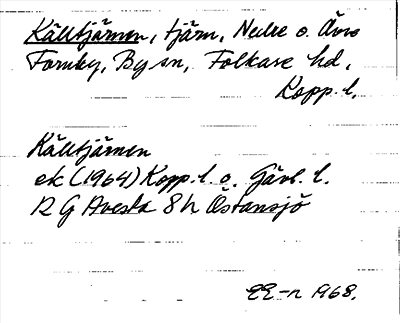 Källtjärnen, tjärn, Nedre o. Övre
Fornby, By sn, Folkare hd,
Kopp. l.
Källtjärnen
ek (1964) Kopp. l. o. Gävl. l.
12 G Avesta 8 h Östansjö
EE-n 1968.